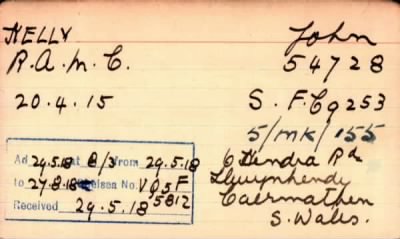 KELLY John
R.A.M.C. 54728
20.4.15 S.F.Cq253
5/MK/155
Ad 29.5.18 at 8/3 from 29.5.18
to 27.8.18 Chelsea No. VQ5F
5812
Received 29.5.18
6 Hendra Rd
Llwynhendy
Caermathen
S. Wales.